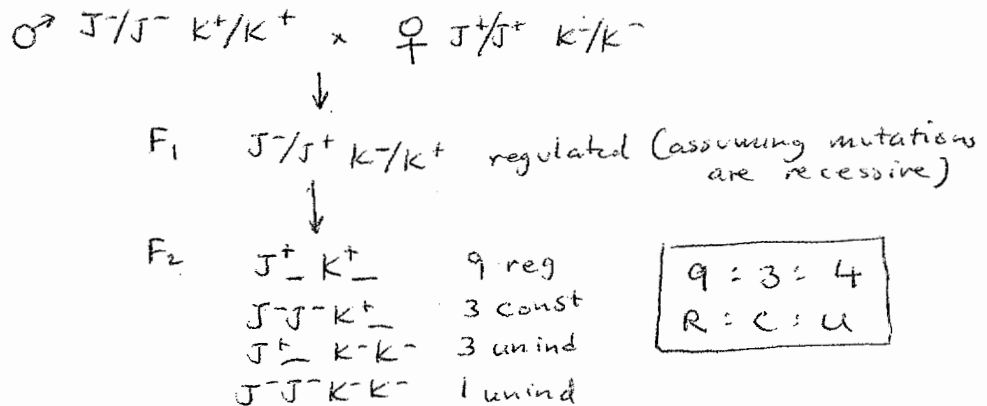 ♂ J⁻/J⁻ K⁺/K⁺ x ♀ J⁺/J⁺ K⁻/K⁻
↓
F₁ J⁻/J⁺ K⁻/K⁺ regulated (assuming mutations
are recessive)
↓
F₂ J⁺_ K⁺_ 9 reg
J⁻J⁻K⁺_ 3 const
J⁺_ K⁻K⁻ 3 unind
J⁻J⁻K⁻K⁻ 1 unind
9 : 3 : 4
R : C : U